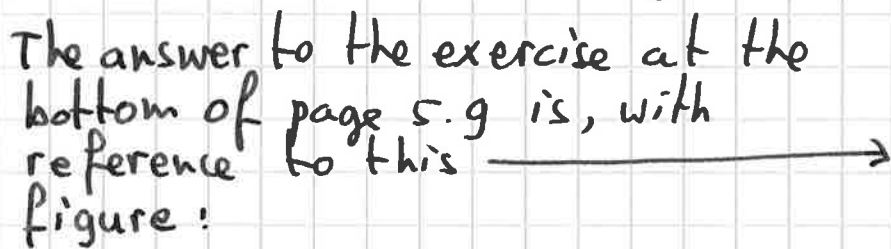 The answer to the exercise at the
bottom of page 5.9 is, with
reference to this
figure: